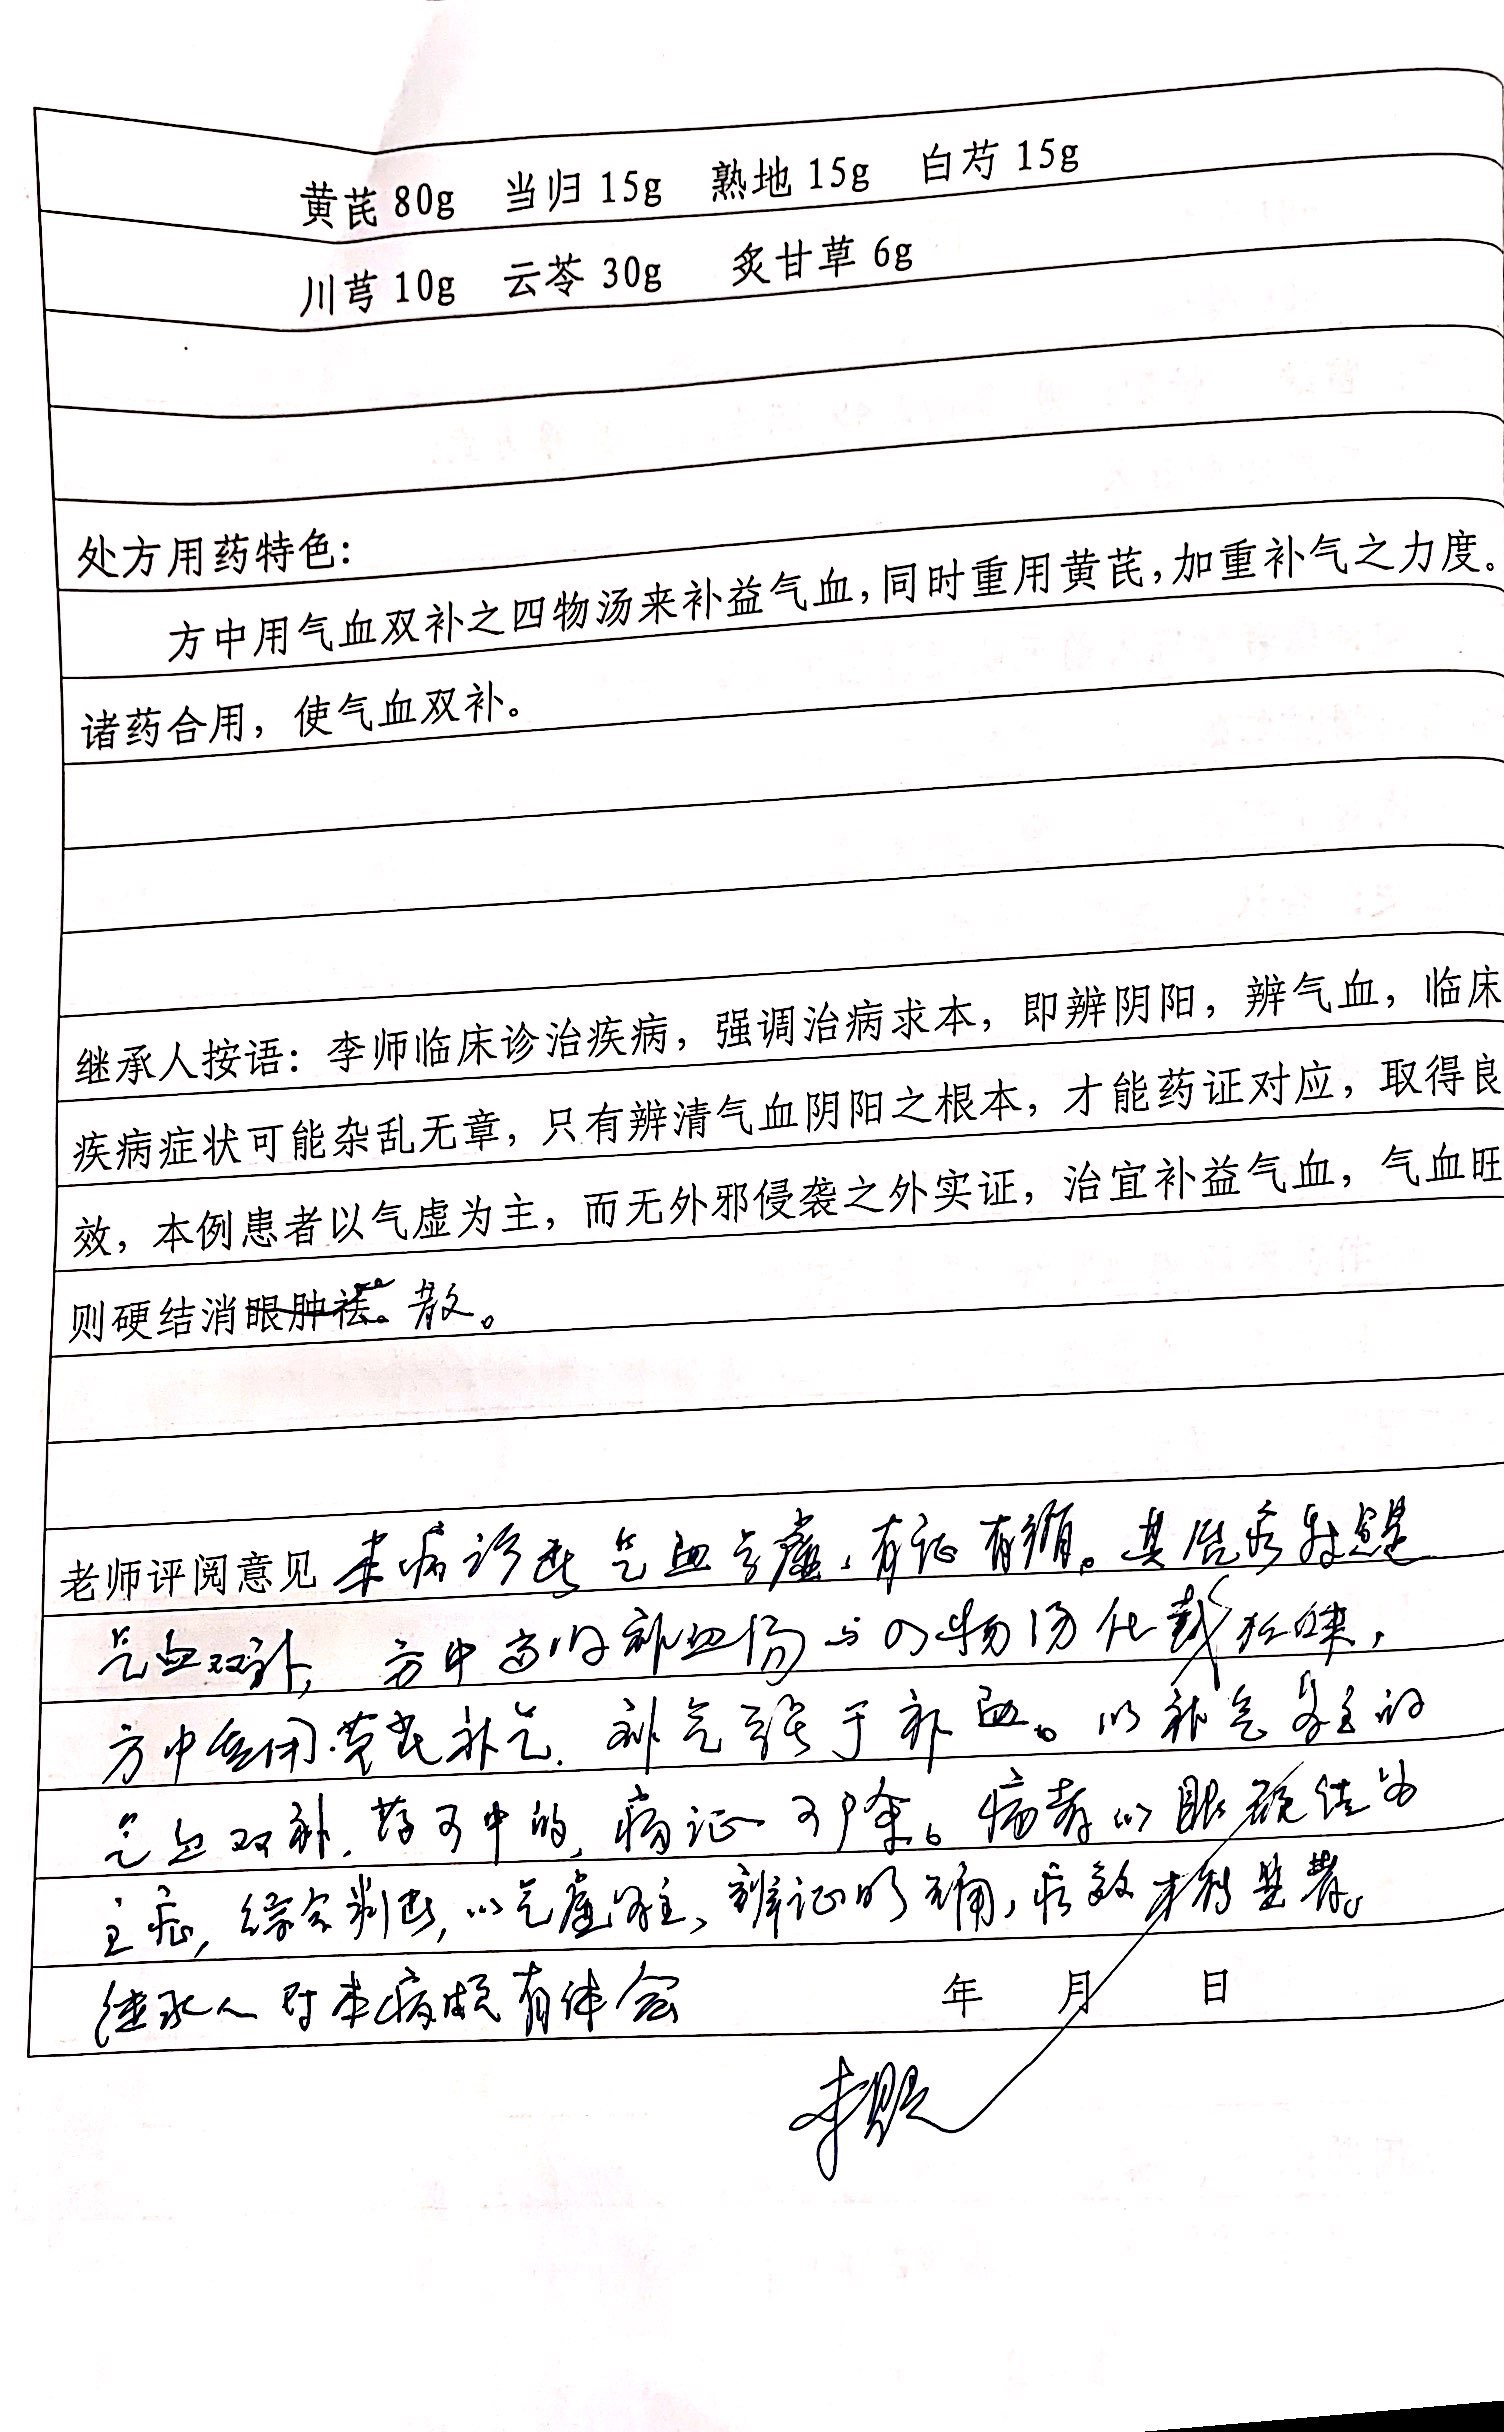 黄芪 80g 当归 15g 熟地 15g 白芍 15g
川芎 10g 云苓 30g 炙甘草 6g
处方用药特色：
方中用气血双补之四物汤来补益气血，同时重用黄芪，加重补气之力度。
诸药合用，使气血双补。
继承人按语：李师临床诊治疾病，强调治病求本，即辨阴阳，辨气血，临床
疾病症状可能杂乱无章，只有辨清气血阴阳之根本，才能药证对应，取得良
效，本例患者以气虚为主，而无外邪侵袭之外实证，治宜补益气血，气血旺
则硬结消眼肿祛。散。
老师评阅意见 本病诊断气血亏虚，有证有循。其治疗特点是
气血双补，方中当归补血汤与四物汤化裁
方中重用黄芪补气，补气强于补血。以补气为主的
气血双补，药可中的，病证可除。病者以眼硬结为
主症，综合判断，以气虚为主，辨证明确，疗效才能显著。
继承人对本病颇有体会 年 月 日
李